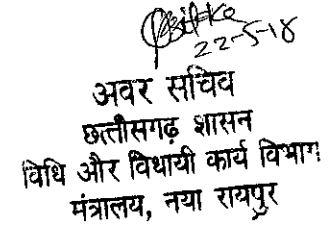 22-5-18
अवर सचिव
छत्तीसगढ़ शासन
विधि और विधायी कार्य विभाग
मंत्रालय, नया रायपुर